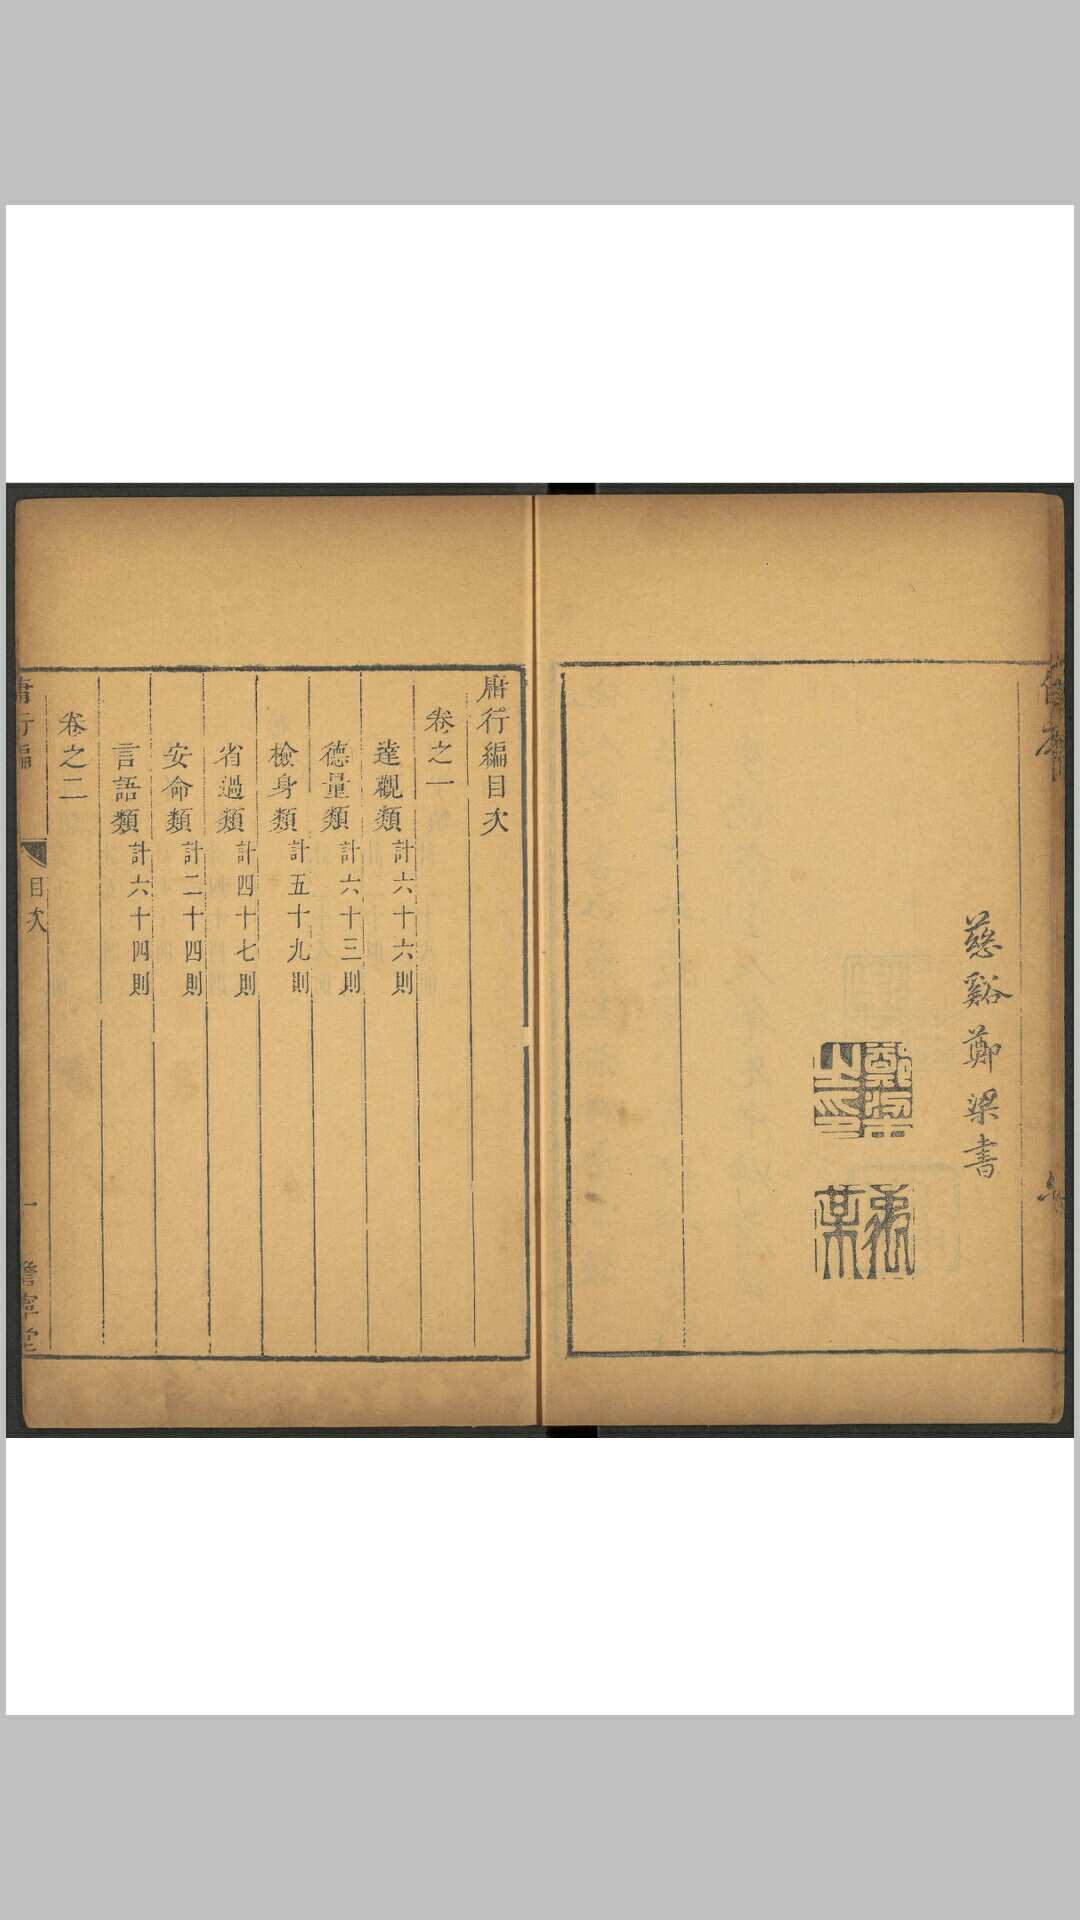 慈谿鄭梁書
鄭梁之印
禹某
庸行編目次
卷之一
達觀類 計六十六則
德量類 計六十三則
檢身類 計五十九則
省過類 計四十七則
安命類 計二十四則
言語類 計六十四則
卷之二
庸行編 目次 一 澹寧堂